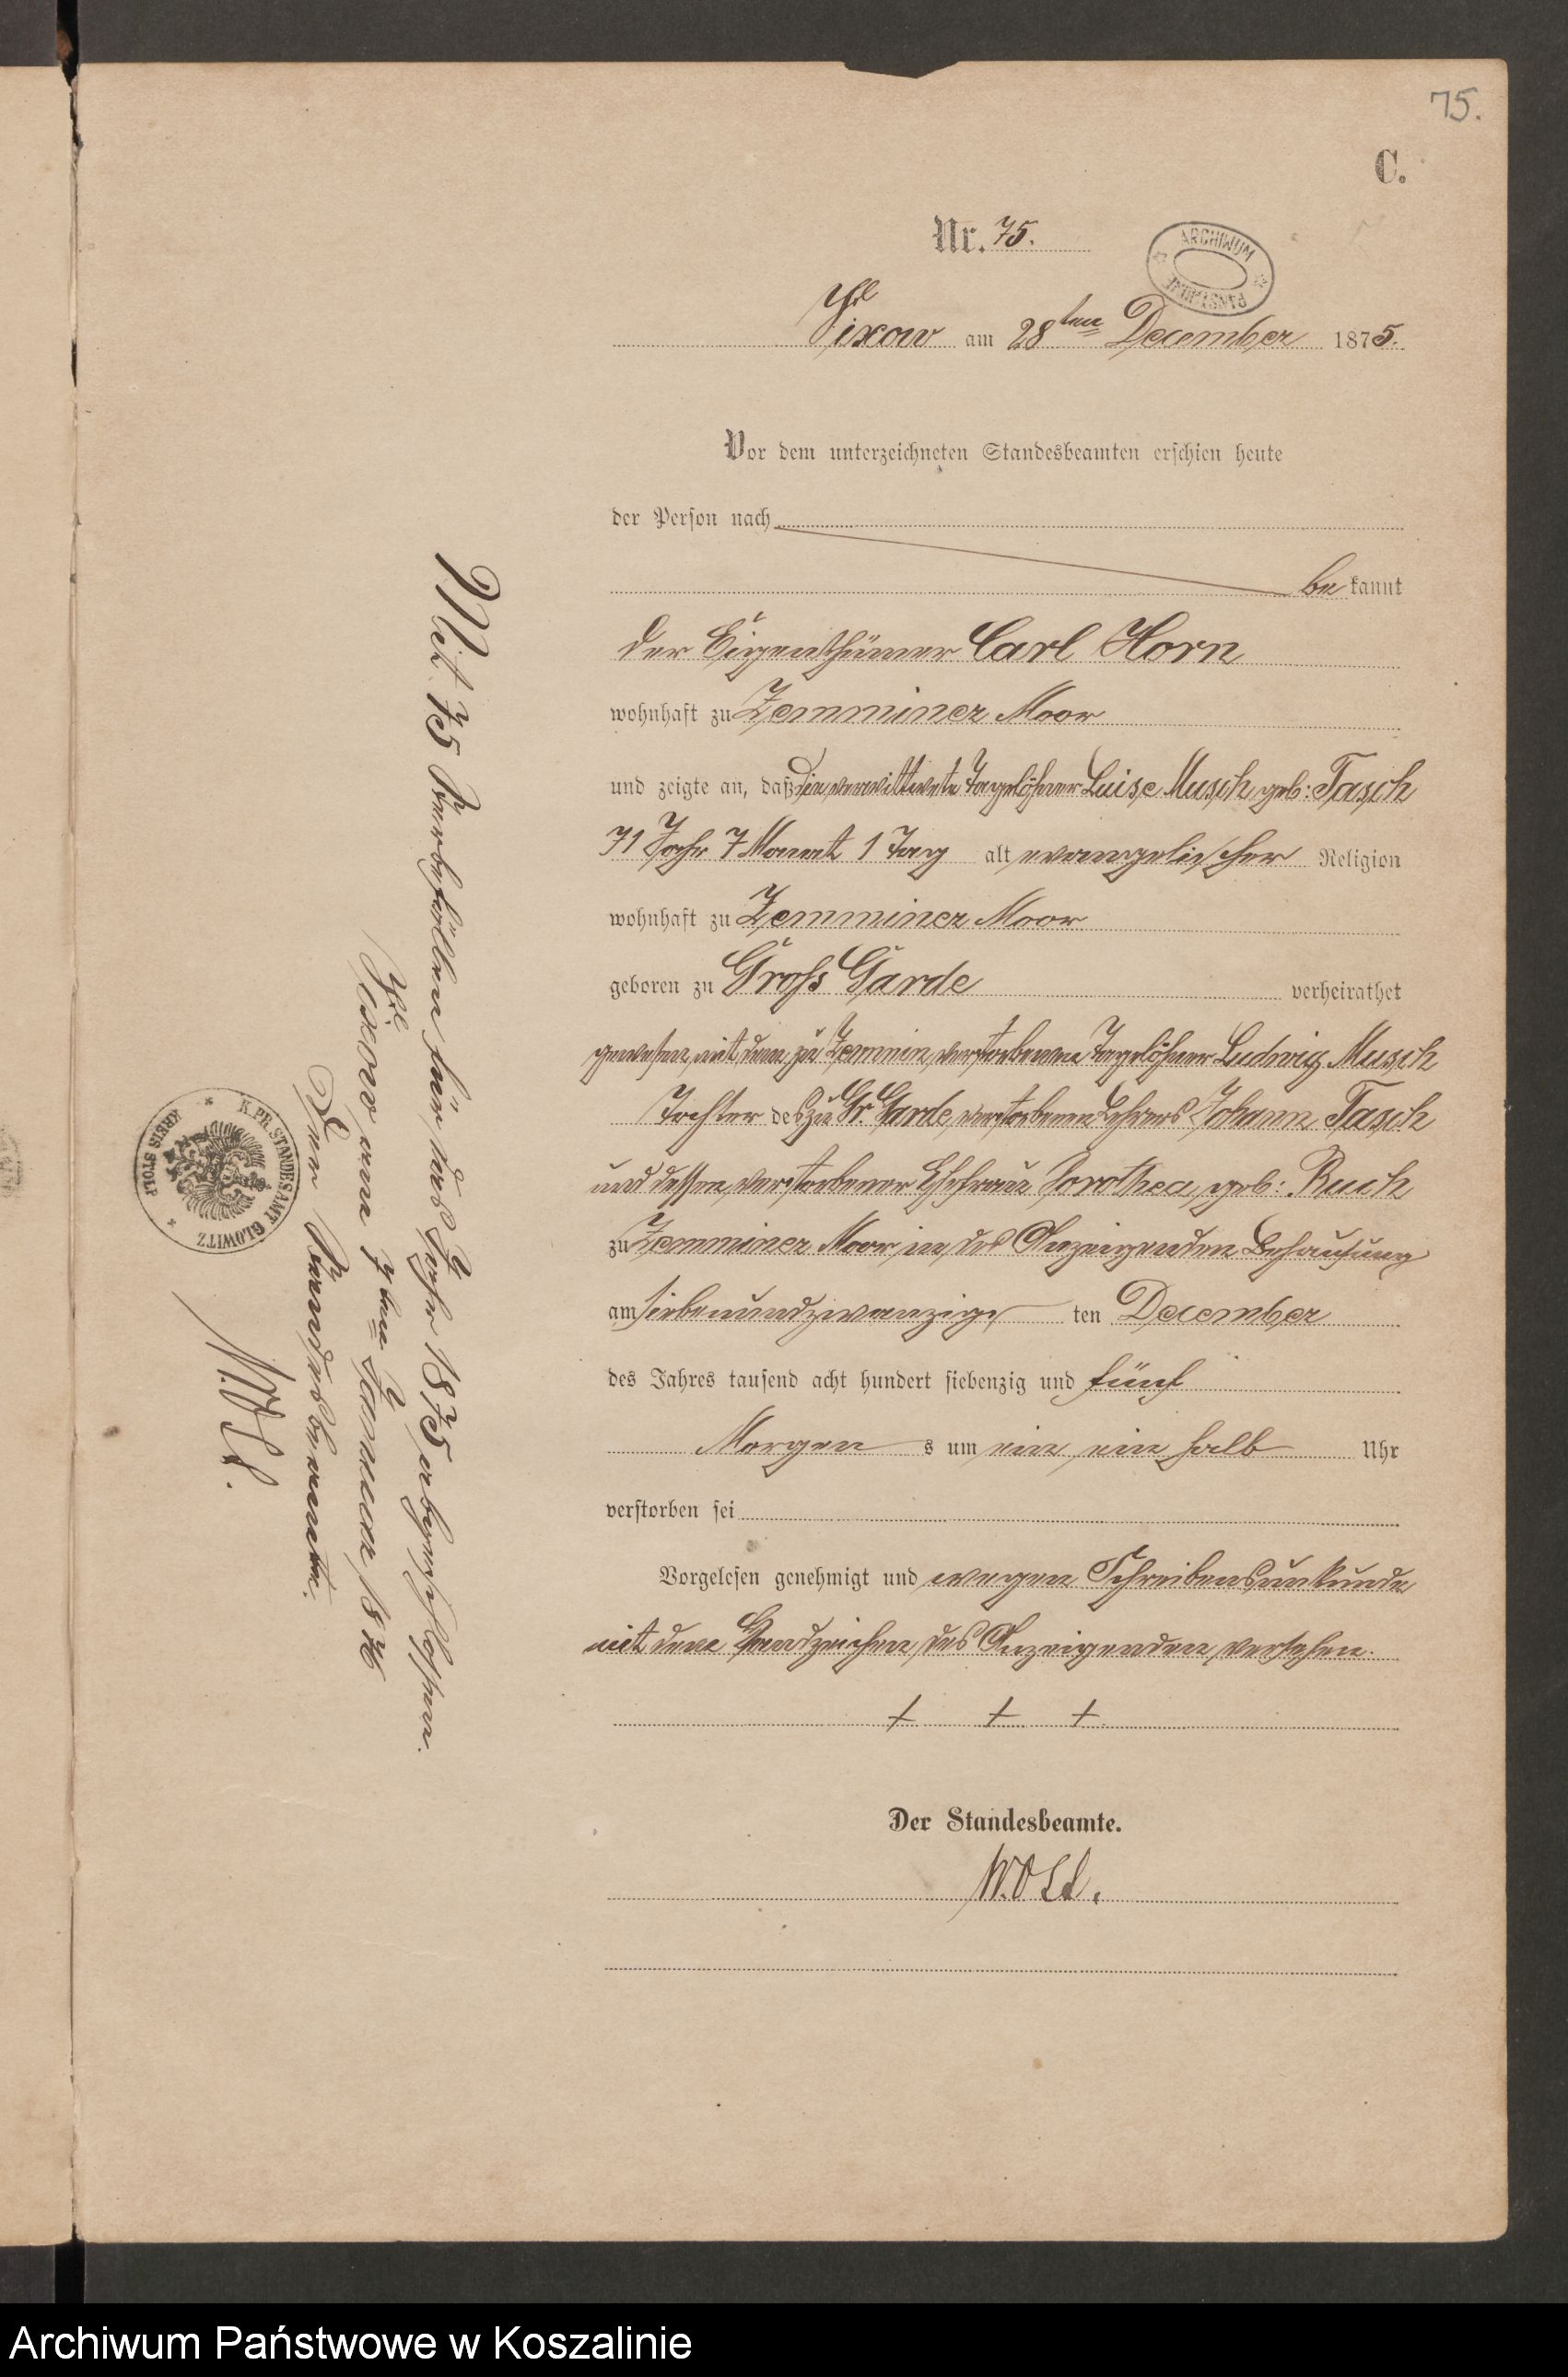 75.
C.
Nr. 75.
ARCHIWUM
Vixow am 28ten December 1875.
Vor dem unterzeichneten Standesbeamten erschien heute
der Person nach
be kannt
der Eigenthümer Carl Horn
wohnhaft zu Zemminer Moor
und zeigte an, daß die verwittwete Tagelöhner Luise Musch geb: Tasch
71 Jahr 7 Monat 1 Tag alt evangelischer Religion
wohnhaft zu Zemminer Moor
geboren zu Gross Garde verheirathet
gewesen mit dem zu Zemmin verstorbenen Tagelöhner Ludwig Musch
Tochter des zu Gr. Garde verstorbenen Lehrers Johann Tasch
und dessen verstorbener Ehefrau Dorothea geb: Ruch
zu Zemminer Moor in des Anzeigenden Behausung
am siebenundzwanzig ten December
des Jahres tausend acht hundert siebenzig und fünf
Morgen s um ein ein halb Uhr
verstorben sei
Vorgelesen genehmigt und wegen Schreibensunkunde
mit dem Handzeichen des Anzeigenden versehen.
+ + +
Der Standesbeamte.
Mit 75 Sterbefällen für das Jahr 1875 abgeschlossen.
Vixow am Januar 1876
Der Standesbeamte.
K. PR. STANDESAMT GLOWITZ
KREIS STOLP
Archiwum Państwowe w Koszalinie